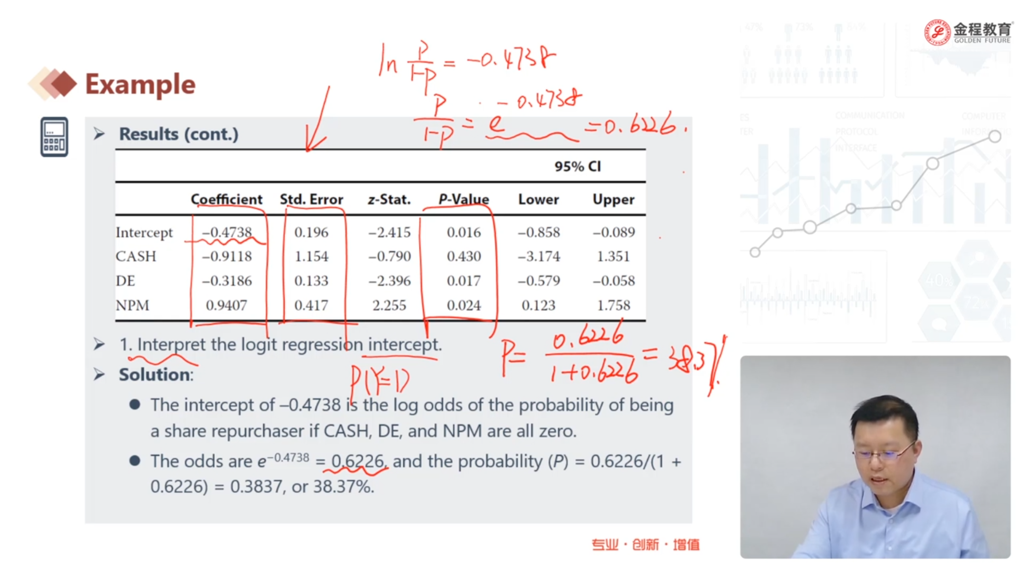 金程教育
GOLDEN FUTURE
ln P/1-P = -0.4738
P/1-P = e^-0.4738 = 0.6226.
Example
Results (cont.)
95% CI
Coefficient Std. Error z-Stat. P-Value Lower Upper
Intercept −0.4738 0.196 −2.415 0.016 −0.858 −0.089
CASH −0.9118 1.154 −0.790 0.430 −3.174 1.351
DE −0.3186 0.133 −2.396 0.017 −0.579 −0.058
NPM 0.9407 0.417 2.255 0.024 0.123 1.758
1. Interpret the logit regression intercept.
P = 0.6226/1+0.6226 = 38.37%
P(Y=1)
Solution:
The intercept of –0.4738 is the log odds of the probability of being
a share repurchaser if CASH, DE, and NPM are all zero.
The odds are e^−0.4738 = 0.6226, and the probability (P) = 0.6226/(1 +
0.6226) = 0.3837, or 38.37%.
专业·创新·增值